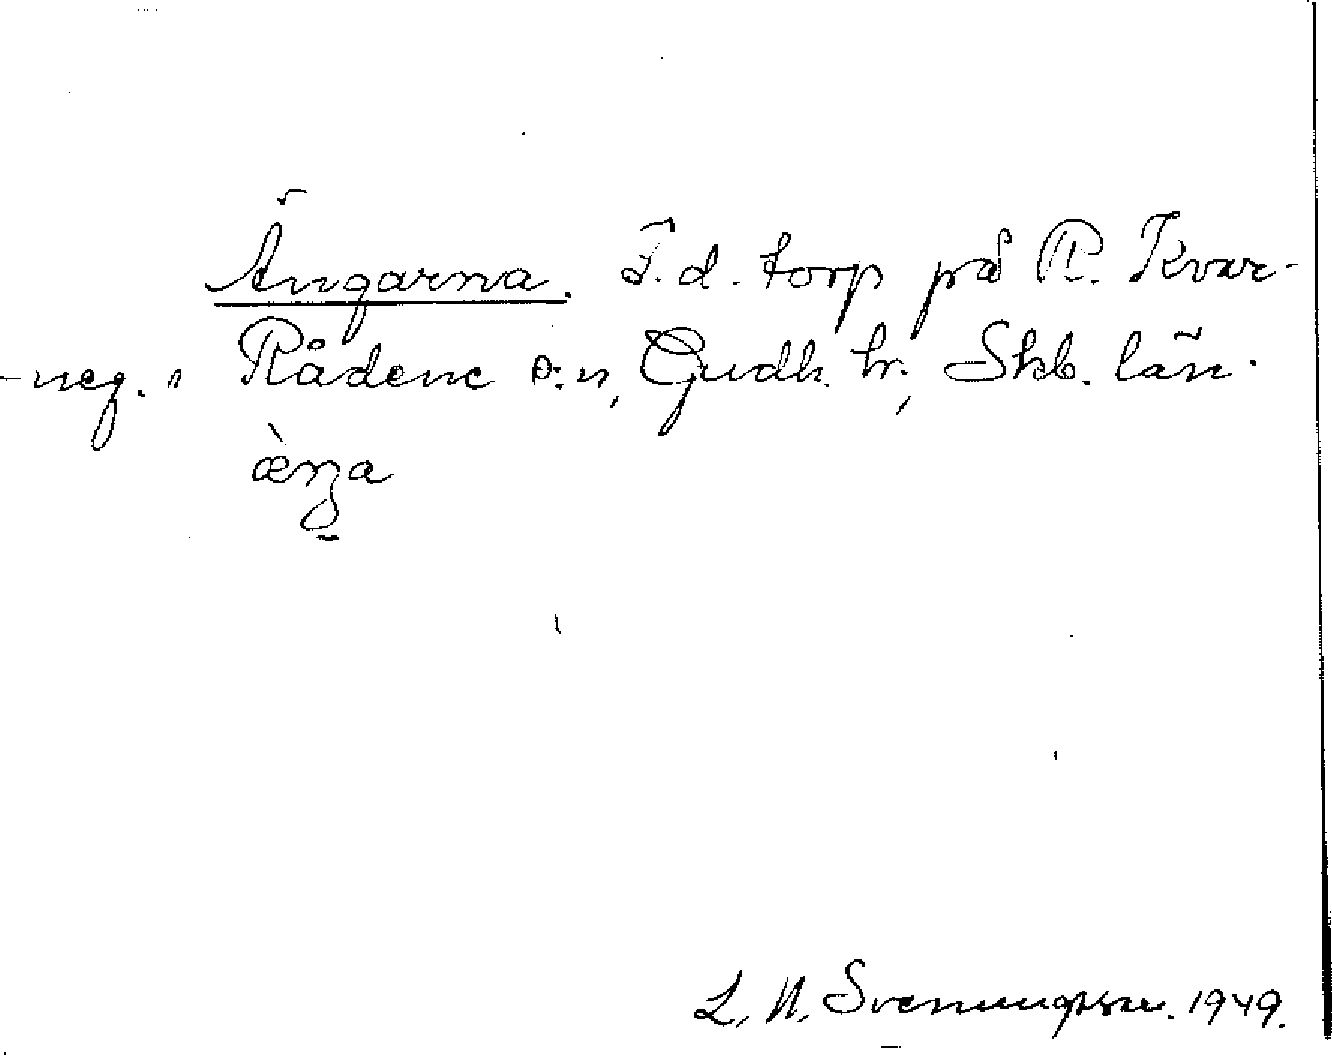 Ängarna. F.d. torp på R. Kvar-
-neg. i Rådene s:n, Gudh. hr., Skb. län.
æ̀nga
L. N. Svenungsson. 1949.